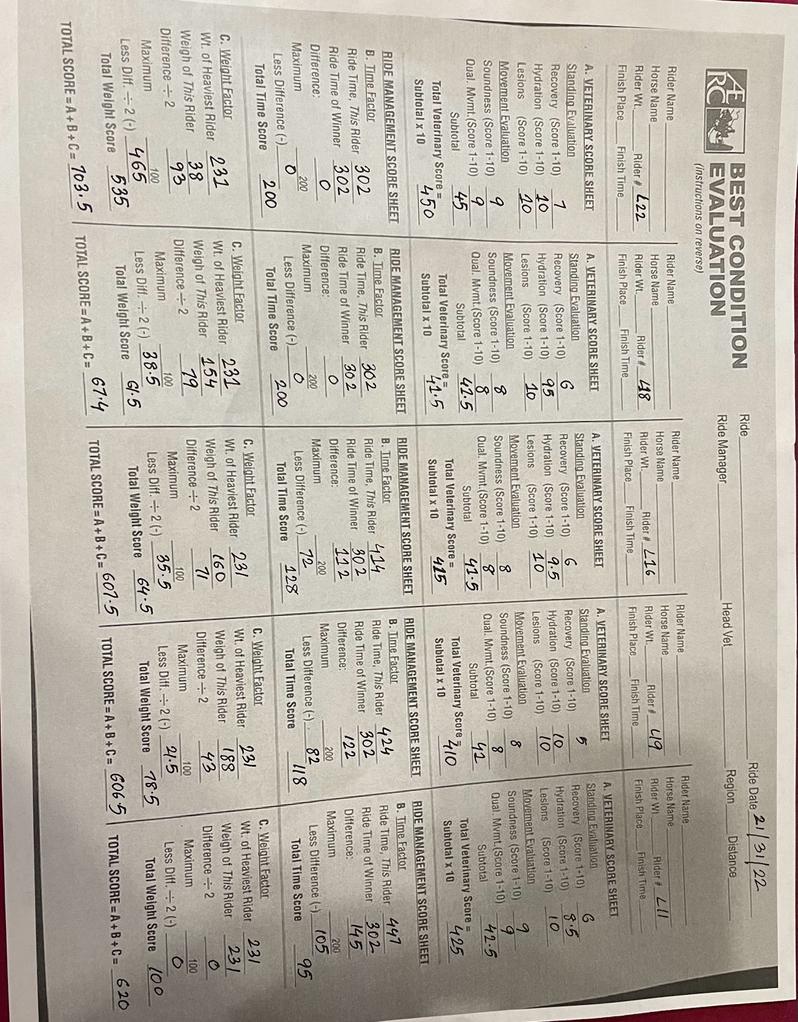 AERC
BEST CONDITION
EVALUATION
(instructions on reverse)
Ride
Ride Manager
Head Vet
Ride Date 21/31/22
Region
Distance
Rider Name
Horse Name
Rider Wt. Rider # L22
Finish Place Finish Time
A. VETERINARY SCORE SHEET
Standing Evaluation
Recovery (Score 1-10) 7
Hydration (Score 1-10) 10
Lesions (Score 1-10) 10
Movement Evaluation
Soundness (Score 1-10) 9
Qual. Mvmt.(Score 1-10) 9
Subtotal 45
Total Veterinary Score =
Subtotal x 10 450
RIDE MANAGEMENT SCORE SHEET
B. Time Factor
Ride Time, This Rider 302
Ride Time of Winner 302
Difference: 0
Maximum 200
Less Difference (-) 0
Total Time Score 200
C. Weight Factor
Wt. of Heaviest Rider 231
Weigh of This Rider 38
Difference ÷ 2 93
Maximum 100
Less Diff. ÷ 2 (-) 465
Total Weight Score 535
TOTAL SCORE = A + B + C = 703.5
Rider Name
Horse Name
Rider Wt. Rider # L18
Finish Place Finish Time
A. VETERINARY SCORE SHEET
Standing Evaluation
Recovery (Score 1-10) 6
Hydration (Score 1-10) 95
Lesions (Score 1-10) 10
Movement Evaluation
Soundness (Score 1-10) 8
Qual. Mvmt.(Score 1-10) 8
Subtotal 41.5
Total Veterinary Score =
Subtotal x 10 41.5
RIDE MANAGEMENT SCORE SHEET
B. Time Factor
Ride Time, This Rider 302
Ride Time of Winner 302
Difference: 0
Maximum 200
Less Difference (-) 0
Total Time Score 200
C. Weight Factor
Wt. of Heaviest Rider 231
Weigh of This Rider 154
Difference ÷ 2 79
Maximum 100
Less Diff. ÷ 2 (-) 38.5
Total Weight Score 61.5
TOTAL SCORE = A + B + C = 67.4
Rider Name
Horse Name
Rider Wt. Rider # L16
Finish Place Finish Time
A. VETERINARY SCORE SHEET
Standing Evaluation
Recovery (Score 1-10) 6
Hydration (Score 1-10) 9.5
Lesions (Score 1-10) 10
Movement Evaluation
Soundness (Score 1-10) 8
Qual. Mvmt.(Score 1-10) 8
Subtotal 41.5
Total Veterinary Score =
Subtotal x 10 415
RIDE MANAGEMENT SCORE SHEET
B. Time Factor
Ride Time, This Rider 414
Ride Time of Winner 302
Difference: 112
Maximum 200
Less Difference (-) 72
Total Time Score 128
C. Weight Factor
Wt. of Heaviest Rider 231
Weigh of This Rider 160
Difference ÷ 2 71
Maximum 100
Less Diff. ÷ 2 (-) 35.5
Total Weight Score 64.5
TOTAL SCORE = A + B + C = 607.5
Rider Name
Horse Name
Rider Wt. Rider # L19
Finish Place Finish Time
A. VETERINARY SCORE SHEET
Standing Evaluation
Recovery (Score 1-10) 5
Hydration (Score 1-10) 10
Lesions (Score 1-10) 10
Movement Evaluation
Soundness (Score 1-10) 8
Qual. Mvmt.(Score 1-10) 8
Subtotal 41
Total Veterinary Score =
Subtotal x 10 410
RIDE MANAGEMENT SCORE SHEET
B. Time Factor
Ride Time, This Rider 424
Ride Time of Winner 302
Difference: 122
Maximum 200
Less Difference (-) 82
Total Time Score 118
C. Weight Factor
Wt. of Heaviest Rider 231
Weigh of This Rider 188
Difference ÷ 2 43
Maximum 100
Less Diff. ÷ 2 (-) 21.5
Total Weight Score 78.5
TOTAL SCORE = A + B + C = 606.5
Rider Name
Horse Name
Rider Wt. Rider # L11
Finish Place Finish Time
A. VETERINARY SCORE SHEET
Standing Evaluation
Recovery (Score 1-10) 6
Hydration (Score 1-10) 8.5
Lesions (Score 1-10) 10
Movement Evaluation
Soundness (Score 1-10) 9
Qual. Mvmt.(Score 1-10) 9
Subtotal 42.5
Total Veterinary Score =
Subtotal x 10 425
RIDE MANAGEMENT SCORE SHEET
B. Time Factor
Ride Time, This Rider 447
Ride Time of Winner 302
Difference: 145
Maximum 200
Less Difference (-) 105
Total Time Score 95
C. Weight Factor
Wt. of Heaviest Rider 231
Weigh of This Rider 231
Difference ÷ 2 0
Maximum 100
Less Diff. ÷ 2 (-) 0
Total Weight Score 100
TOTAL SCORE = A + B + C = 620